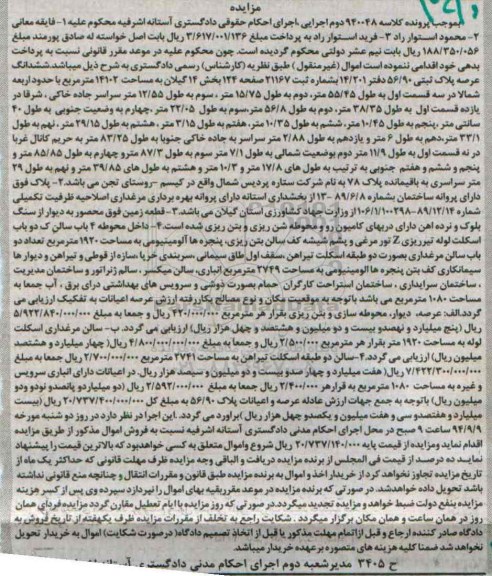 مزایده
بموجب پرونده کلاسه ۹۴۰۰۴۸ دوم اجرایی ،اجرای احکام حقوقی دادگستری آستانه اشرفیه محکوم علیه ۱- فایقه معانی
۲- محمود استوار راد ۳- فرید استوار راد به پرداخت مبلغ ۳/۶۱۷/۰۰۱/۱۳۶ ریال بابت اصل خواسته له صادق پورمند مبلغ
۱۸۸/۳۵۰/۰۵۶ ریال بابت نیم عشر دولتی محکوم گردیده است. چون محکوم علیه در موعد مقرر قانونی نسبت به پرداخت
بدهی خود اقدامی ننموده است اموال (غیرمنقول ) طبق نظریه (کارشناس) رسمی دادگستری به شرح ذیل میباشد.ششدانگ
عرصه پلاک ثبتی ۵۶/۹۰ دفتر ۱۴/۲۰۱ بشماره ثبت ۲۱۱۶۷ صفحه ۱۲۴ بخش ۱۴ گیلان به مساحت ۱۴۱۰۲ مترمربع با حدود اربعه
شمالا در سه قسمت اول به طول ۵۵/۴۵ متر، دوم به طول ۱۵/۷۵ متر ، سوم به طول ۱۲/۵۵ متر سراسر جاده خاکی ، شرقا در
یازده قسمت اول به طول ۳۸/۳۵ متر، دوم به طول ۵۶/۸ متر،سوم به طول ۲۲/۰۵ متر ،چهارم به وضعیت جنوبی به طول ۴۰
سانتی متر ،پنجم به طول ۱۰/۴۵ متر، ششم به طول ۱۰/۳۵ متر، هفتم به طول ۳/۱۵ متر ، هشتم به طول ۲۹/۱۵ متر ، نهم به طول
۳۳/۱ متر،دهم به طول ۶ متر و یازدهم به طول ۲/۸۸ متر سراسر به جاده خاکی جنوبا به طول ۸۳/۲۵ متر به حریم کانال غربا
در نه قسمت اول به طول ۱۱/۹ متر دوم بوضعیت شمالی به طول ۷/۱ متر سوم به طول ۸۷/۳ مترو چهارم به طول ۸۵/۸۵ متر و
پنجم و ششم و هفتم جنوبی به ترتیب به طول های ۱۷/۸ متر و ۱۰/۳ متر و هشتم به طول های ۳۹/۸۵ متر و نهم به طول ۲۹
متر سراسری به باقیمانده پلاک ۷۸ به نام شرکت ستاره پردیس شمال واقع در کیسم -روستای تجن می باشد.۲- پلاک فوق
دارای پروانه ساختمان بشماره ۸۹/۶/۸ - ۱۳ از بخشداری آستانه دارای پروانه بهره برداری مرغداری اصلاحیه ظرفیت تکمیلی
شماره ۸۹/۱۲/۱۴-۱۰۶/۱/۱۰۰۲۹۸از وزارت جهاد کشاورزی استان گیلان می باشد.۳- قطعه زمین فوق محصور به دیوار از سنگ
بلوک و نرده آهن دارای دربهای کامیون رو و محوطه شن ریزی و بتن ریزی شده است.۴- داخل محوطه ۴ باب سالن ک دو باب
اسکلت لوله تیرریزی Z نور مرغی و پشم شیشه کف سالن بتن ریزی، پنجره ها آلومینیومی به مساحت ۱۹۲۰ مترمربع تعداد دو
باب سالن مرغداری بصورت دو طبقه اسکلت تیرآهن ،سقف اول طاق سیمانی ،سربندی خرپا ،سازه از قوطی و تیرآهن و دیوار ها
سیمانکاری کف بتن پنجره ها آلومینیومی به مساحت ۲۷۴۹ مترمربع انباری، سالن میکسر ، سالم ژنراتور و ساختمان مدیریت
، ساختمان سرایداری ، ساختمان استراحت کارگران حمام بصورت دوشی و سرویس های بهداشتی درای برق ، آب جمعا به
مساحت ۱۰۸۰ مترمربع می باشد باتوجه به موقعیت مکان و نوع مصالح بکاررفته ارزش عرصه اعیانات به تفکیک ارزیابی می
گردد.الف: عرصه، دیوار، محوطه سازی و شن ریزی بقرار هر مترمربع ۴۲۰/۰۰۰ ریال و جمعا به مبلغ ۵/۹۲۲/۸۴۰/۰۰۰
ریال (پنج میلیارد و نهصدو بیست و دو میلیون و هشتصد و چهل هزار ریال) ارزیابی می گردد. ب- سالن مرغداری اسکلت
لوله به مساحت ۱۹۲۰ متر بقرار هر مترمربع ۲/۵۰۰/۰۰۰ ریال و جمعا به مبلغ ۴/۸۰۰/۰۰۰/۰۰۰ ریال(چهار میلیارد و هشتصد
میلیون ریال) ارزیابی می گردد.۴-سالن دو طبقه اسکلت تیرآهن به مساحت ۲۷۴۱ مترمربع ۲/۷۰۰/۰۰۰ ریال جمعا به مبلغ
۷/۴۲۲/۳۰۰/۰۰۰ ریال(هفت میلیارد و چهارصدوبیست و دو میلیون و سیصد هزار ریال. د- اعیانات دارای انباری سرویس
و غیره به مساحت ۱۰۸۰ مترمربع به قرارهر ۲/۴۰۰/۰۰۰ ریال جمعا به مبلغ ۲/۵۹۲/۰۰۰/۰۰۰ ریال (دو میلیاردو پانصدو نودو ودو
میلیون ریال) باتوجه به جمع جهات ارزش عادله عرصه و اعیانات پلاک ۵۶/۹۰ به مبلغ کل ۲۰/۷۳۷/۴۰۰/۰۰۰ ریال (بیست
میلیارد و هفتصدو سی و هفت میلیون و یکصدو چهل هزار ریال )براورد می گردد. .این اجرا در نظر دارد در روز دو شنبه مورخه
۹۴/۹/۹ ساعت ۹ صبح در محل اجرای احکام مدنی دادگستری آستانه اشرفیه نسبت به فروش اموال مذکور از طریق مزایده
اقدام نماید ومزایده از قیمت پایه ۲۰/۷۳۷/۱۴۰/۰۰۰ ریال شروع واموال متعلق به کسی خواهدبود که بالاترین قیمت را پیشنهاد
نمایدده درصد از قیمت فی المجلس از برنده مزایده دریافت و الباقی وجه مزایده ظرف مهلت قانونی که حداکثر یک ماه از
تاریخ مزایده تجاوز نخواهد کرد از خریدار اخذ و اموال به برنده مزایده طبق قانون و مقررات انتقال و چنانچه منع قانونی نداشته
باشد تحویل داده خواهدشد. در صورتی که برنده مزایده در موعد مقرربقیه بهای اموال را نپردازد سپرده وی پس از کسر هزینه
مزایده بنفع دولت ضبط خواهد و مزایده تجدید میگردد.در صورتی که روز مزایده با ایام تعطیل مقارن گردد مزایده فردای همان
روز در همان ساعت و همان مکان برگزار میگردد . شکایت راجع به تخلف از مقررات مزایده ظرف یکهفته از تاریخ فروش به
دادگاه صادر کننده ارجاع و قبل ازاتمام مهلت مذکور یا قبل از اتخاذ تصمیم دادگاه( درصورت شکایت) اموال به خریدار تحویل
نخواهد شد ضمنا کلیه هزینه های متصوره بر عهده خریدار میباشد.
ح ۳۴۰۵ مدیرشعبه دوم اجرای احکام مدنی دادگستری آستانه